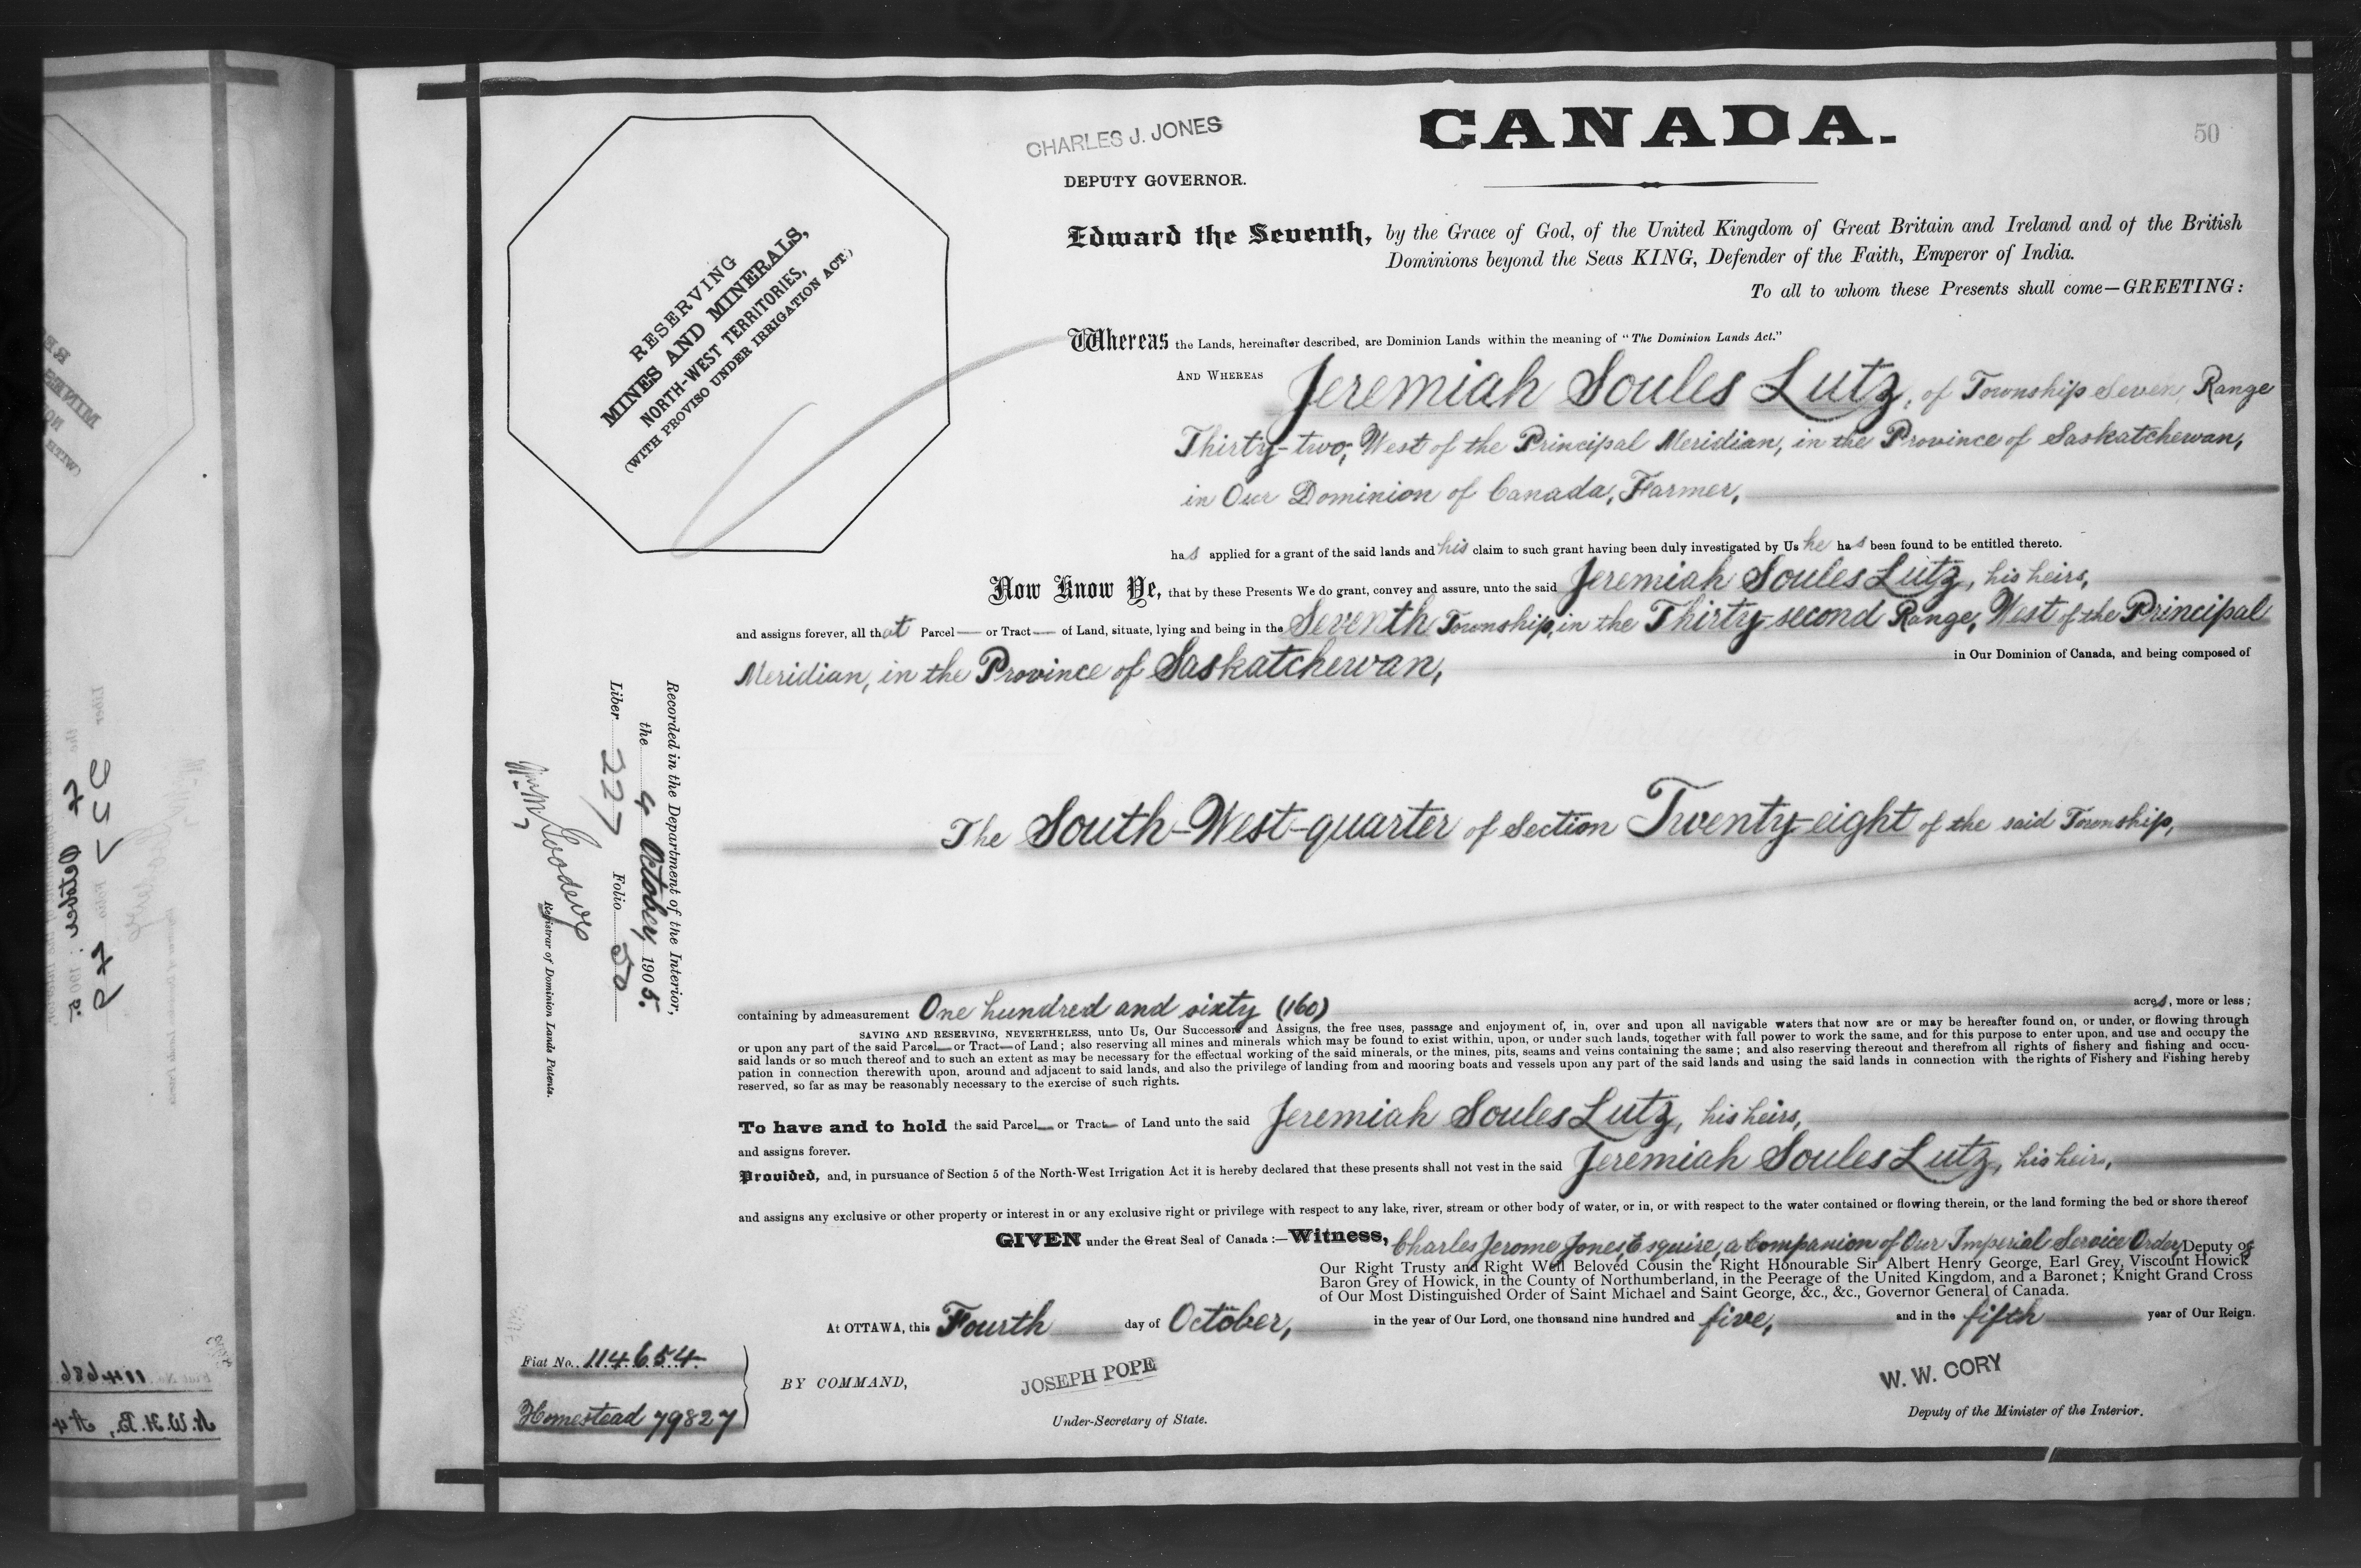 CHARLES J. JONES
DEPUTY GOVERNOR.
CANADA.
50
RESERVING
MINES AND MINERALS,
NORTH-WEST TERRITORIES,
(WITH PROVISO UNDER IRRIGATION ACT.)
Edward the Seventh, by the Grace of God, of the United Kingdom of Great Britain and Ireland and of the British
Dominions beyond the Seas KING, Defender of the Faith, Emperor of India.
To all to whom these Presents shall come—GREETING:
Whereas the Lands, hereinafter described, are Dominion Lands within the meaning of "The Dominion Lands Act."
AND WHEREAS Jeremiah Soules Lutz, of Township Seven, Range
Thirty-two, West of the Principal Meridian, in the Province of Saskatchewan,
in Our Dominion of Canada, Farmer,
has applied for a grant of the said lands and his claim to such grant having been duly investigated by Us he has been found to be entitled thereto.
Now Know Ye, that by these Presents We do grant, convey and assure, unto the said Jeremiah Soules Lutz, his heirs,
and assigns forever, all that Parcel— or Tract— of Land, situate, lying and being in the Seventh Township, in the Thirty-second Range, West of the Principal
Meridian, in the Province of Saskatchewan, in Our Dominion of Canada, and being composed of
The South-West-quarter of Section Twenty-eight of the said Township,
containing by admeasurement One hundred and sixty (160) acres, more or less;
SAVING AND RESERVING, NEVERTHELESS, unto Us, Our Successors and Assigns, the free uses, passage and enjoyment of, in, over and upon all navigable waters that now are or may be hereafter found on, or under, or flowing through
or upon any part of the said Parcel— or Tract— of Land; also reserving all mines and minerals which may be found to exist within, upon, or under such lands, together with full power to work the same, and for this purpose to enter upon, and use and occupy the
said lands or so much thereof and to such an extent as may be necessary for the effectual working of the said minerals, or the mines, pits, seams and veins containing the same; and also reserving thereout and therefrom all rights of fishery and fishing and occu-
pation in connection therewith upon, around and adjacent to said lands, and also the privilege of landing from and mooring boats and vessels upon any part of the said lands and using the said lands in connection with the rights of Fishery and Fishing hereby
reserved, so far as may be reasonably necessary to the exercise of such rights.
To have and to hold the said Parcel— or Tract— of Land unto the said Jeremiah Soules Lutz, his heirs,
and assigns forever.
Provided, and, in pursuance of Section 5 of the North-West Irrigation Act it is hereby declared that these presents shall not vest in the said Jeremiah Soules Lutz, his heirs,
and assigns any exclusive or other property or interest in or any exclusive right or privilege with respect to any lake, river, stream or other body of water, or in, or with respect to the water contained or flowing therein, or the land forming the bed or shore thereof
GIVEN under the Great Seal of Canada:—Witness, Charles Jerome Jones, Esquire, a Companion of Our Imperial Service Order, Deputy of
Our Right Trusty and Right Well Beloved Cousin the Right Honourable Sir Albert Henry George, Earl Grey, Viscount Howick
Baron Grey of Howick, in the County of Northumberland, in the Peerage of the United Kingdom, and a Baronet; Knight Grand Cross
of Our Most Distinguished Order of Saint Michael and Saint George, &c., &c., Governor General of Canada.
At OTTAWA, this Fourth day of October, in the year of Our Lord, one thousand nine hundred and five, and in the fifth year of Our Reign.
Fiat No. 114654
Homestead 79827
BY COMMAND,
JOSEPH POPE
Under-Secretary of State.
W. W. CORY
Deputy of the Minister of the Interior.
Recorded in the Department of the Interior,
the 4 October 1905.
Liber 227 Folio 50
Registrar of Dominion Lands Patents.